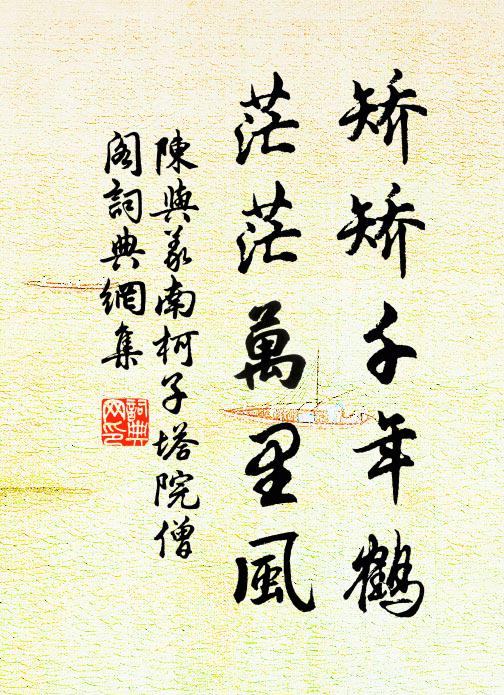 矯矯千年鶴
茫茫萬里風
陳與義南柯子塔院僧
閣詞典網集
詞典
网印